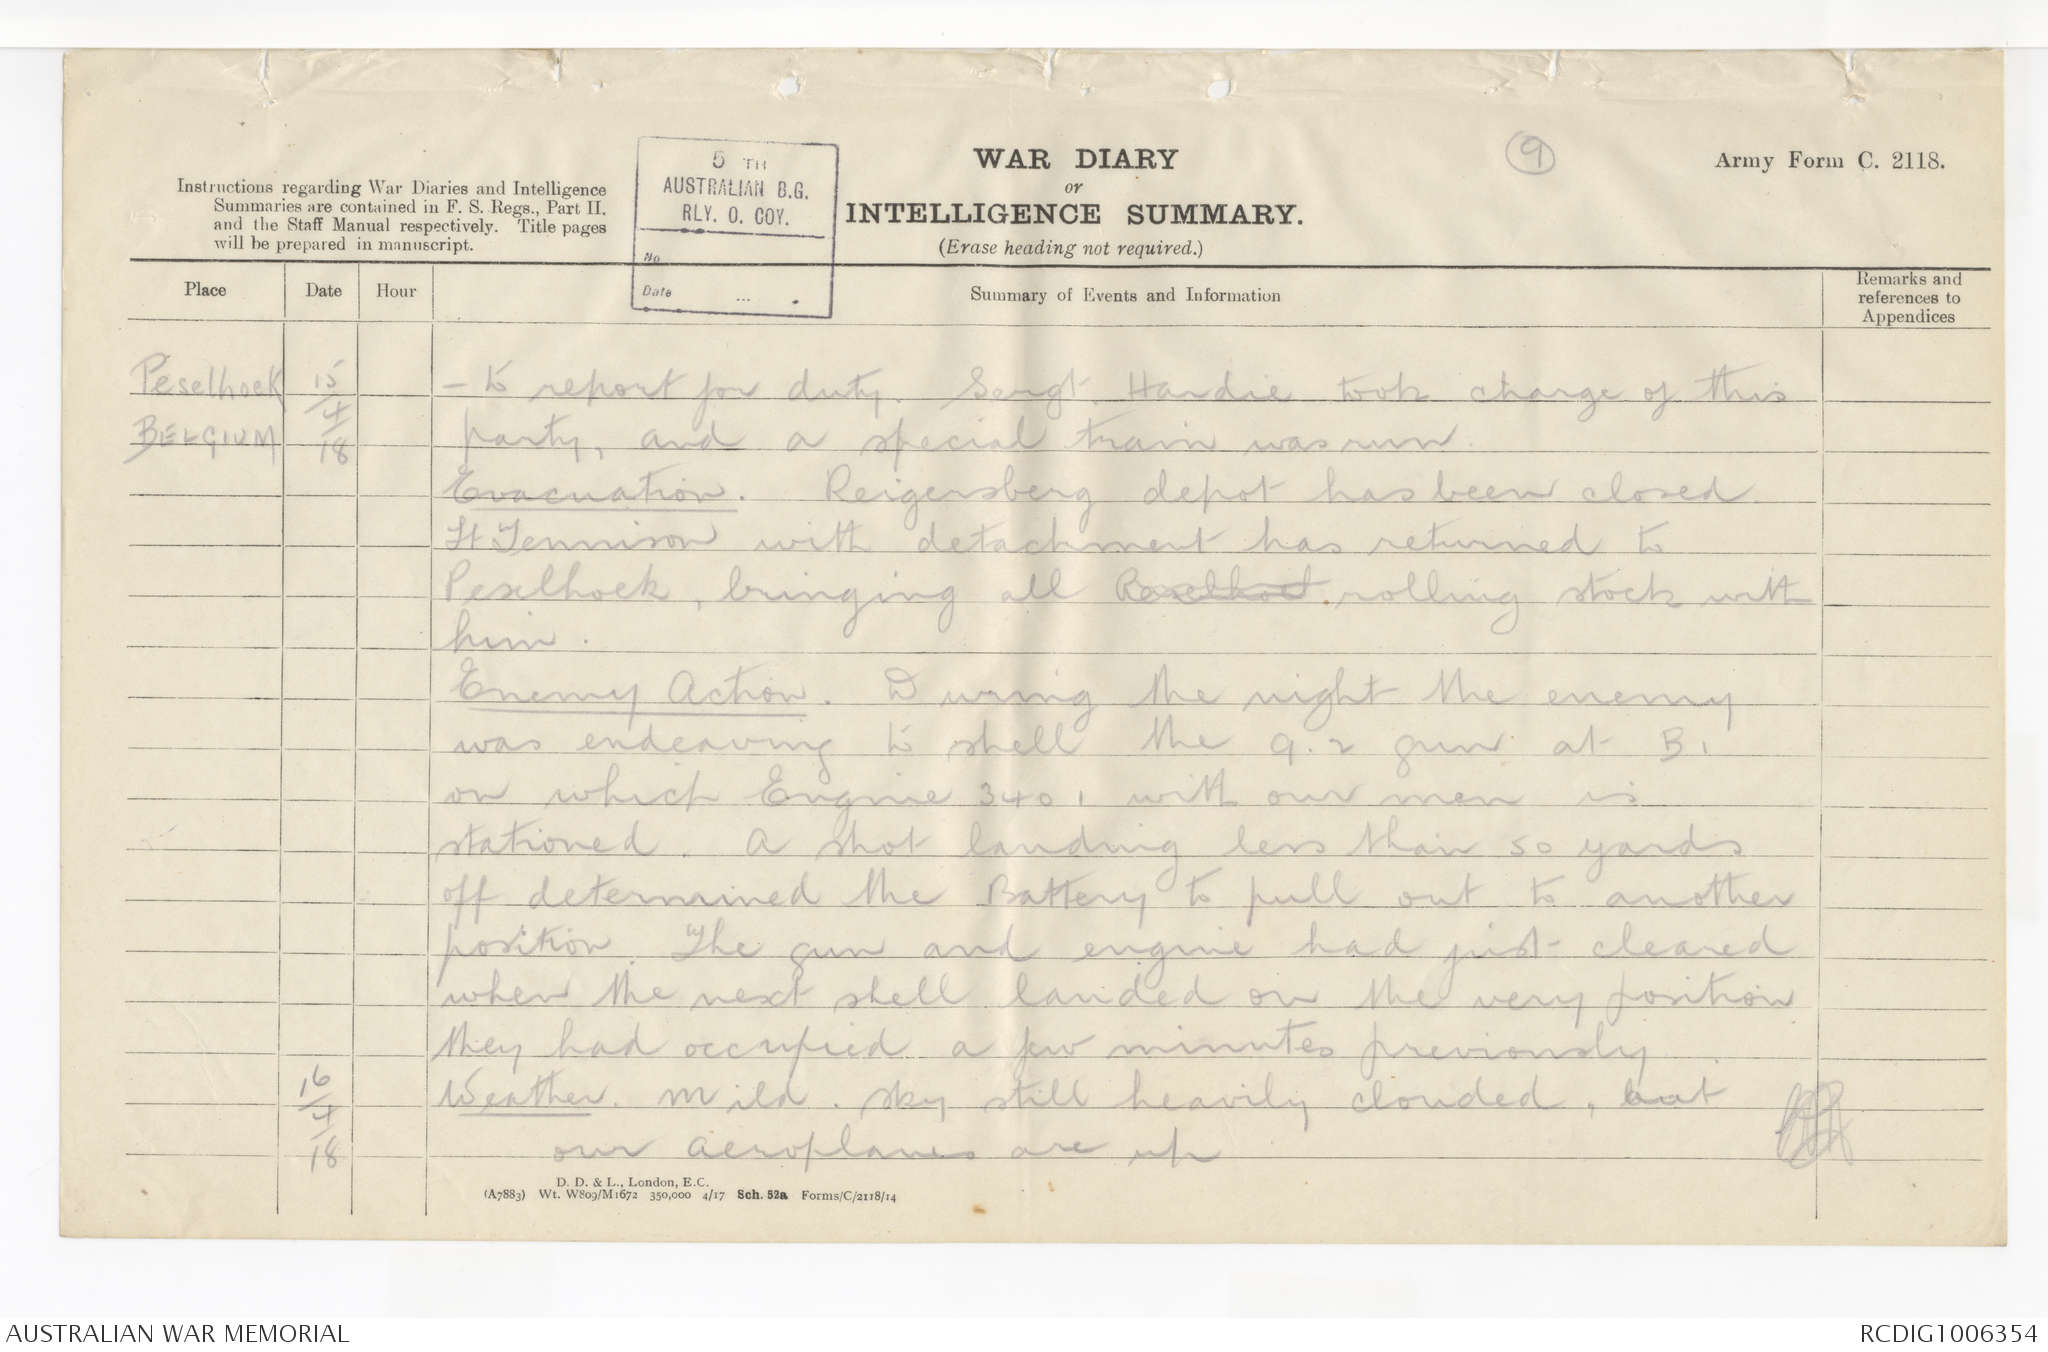 5 TH
AUSTRALIAN B.G.
RLY. O. COY.
No
Date ... .
WAR DIARY
or
INTELLIGENCE SUMMARY.
(Erase heading not required.)
9
Army Form C. 2118.
Instructions regarding War Diaries and Intelligence
Summaries are contained in F. S. Regs., Part II.
and the Staff Manual respectively. Title pages
will be prepared in manuscript.
Place
Date
Hour
Summary of Events and Information
Remarks and
references to
Appendices
Peselhoek
BELGIUM
15
4
18
- to report for duty. Sergt. Hardie took charge of this
party, and a special train was run.
Evacuation. Reigersberg depot has been closed
Lt Tennison with detachment has returned to
Peselhoek, bringing all rolling stock with
him.
Enemy Action. During the night the enemy
was endeaving to shell the 9.2 gun at B1
on which Engine 3401 with our men is
stationed. A shot landing less than 50 yards
off determined the Battery to pull out to another
position. The gun and engine had just cleared
when the next shell landed on the very position
they had occupied a few minutes previously.
16
4
18
Weather. Mild. Sky still heavily clouded, but
our aeroplanes are up
D. D. & L., London, E.C.
(A7883) Wt. W809/M1672 350,000 4/17 Sch. 52a Forms/C/2118/14
AUSTRALIAN WAR MEMORIAL
RCDIG1006354